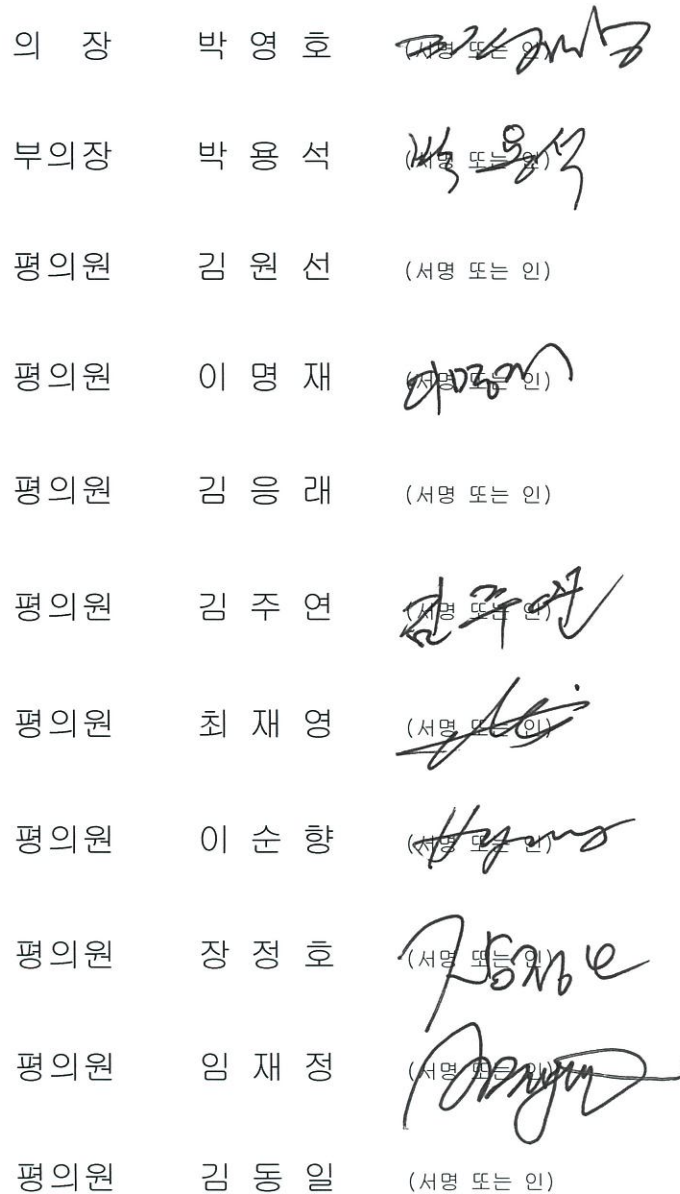 의 장 박 영 호 (서명 또는 인)
부의장 박 용 석 (서명 또는 인) 박용석
평의원 김 원 선 (서명 또는 인)
평의원 이 명 재 (서명 또는 인) 이명재
평의원 김 응 래 (서명 또는 인)
평의원 김 주 연 (서명 또는 인) 김주연
평의원 최 재 영 (서명 또는 인)
평의원 이 순 향 (서명 또는 인)
평의원 장 정 호 (서명 또는 인) 장정호
평의원 임 재 정 (서명 또는 인)
평의원 김 동 일 (서명 또는 인)